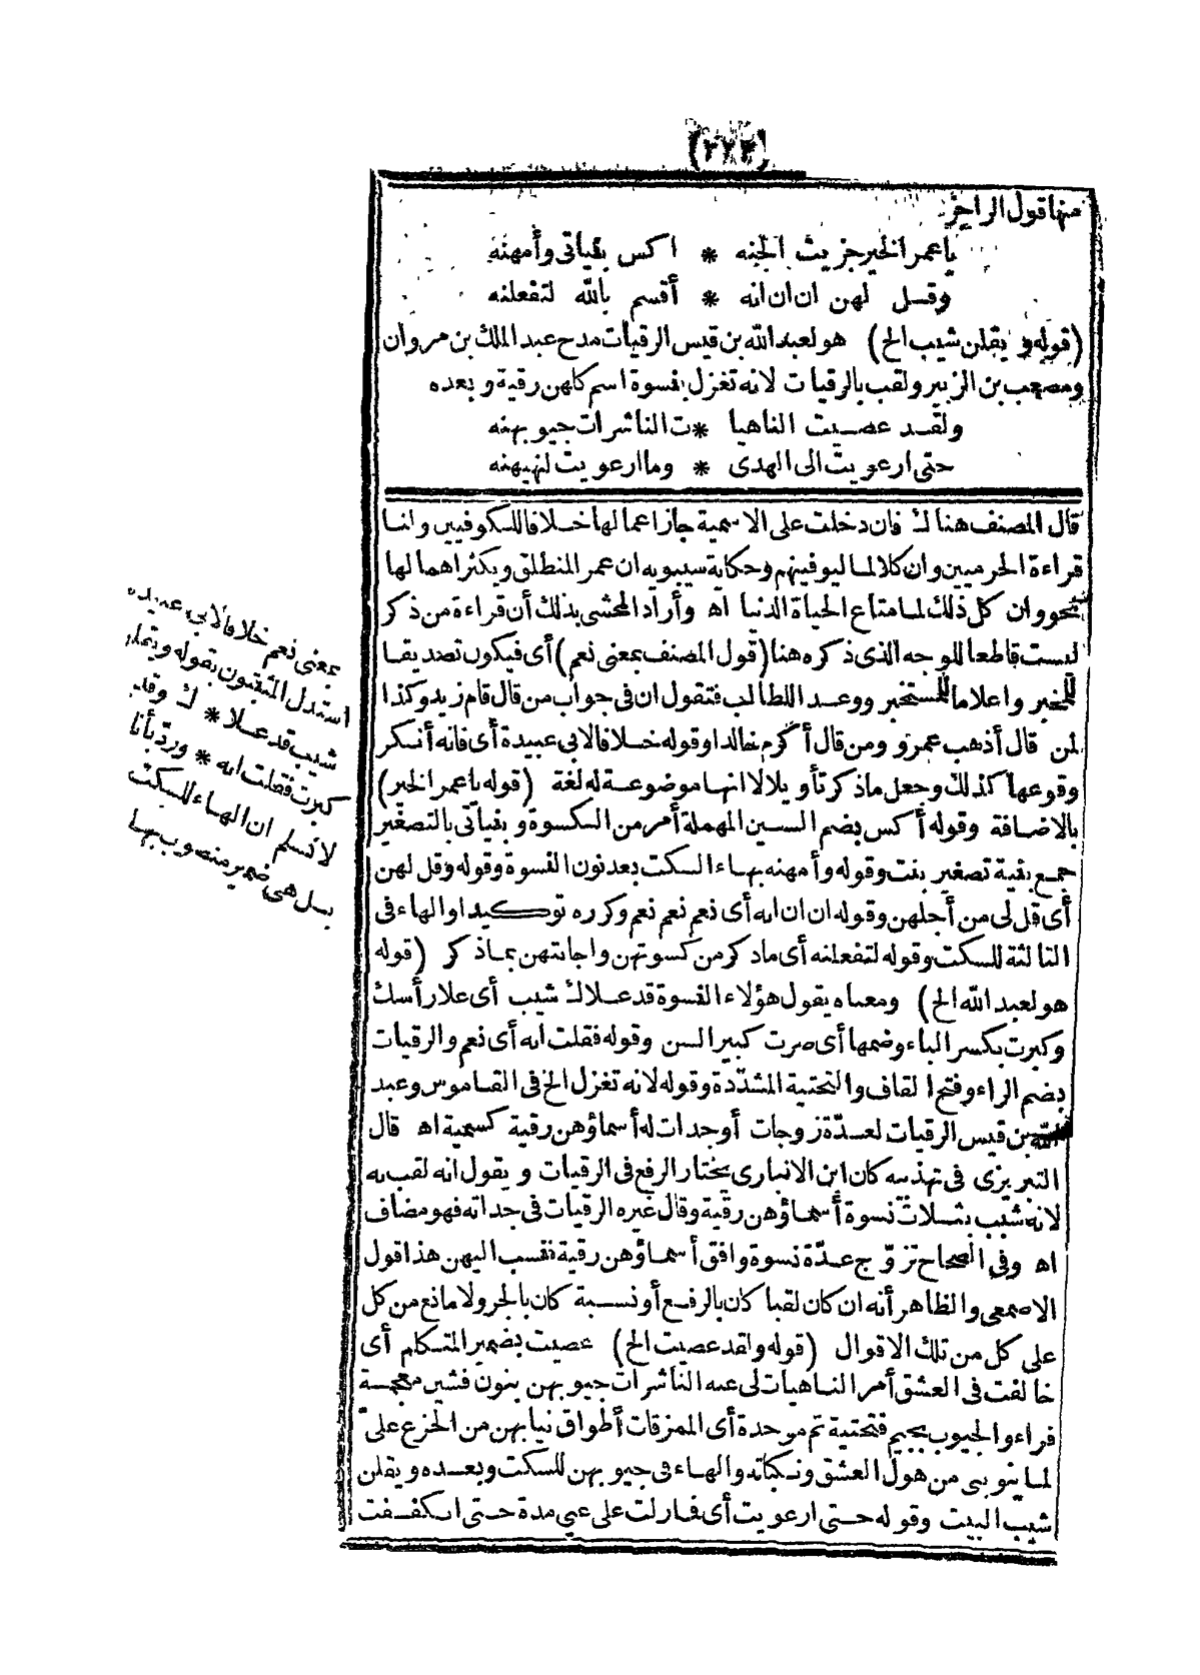 (٢٢٣)
منها قول الراجز
يا عمر الخير جزيت الجنه * اكس بنياتى وأمهنه
وقل لهن ان ان انه * أقسم بالله لتفعلنه
(قوله ويقلن شيب الخ) هو لعبد الله بن قيس الرقيات مدح عبد الملك بن مروان
ومصعب بن الزبير ولقب بالرقيات لانه تغزل بنسوة اسم كلهن رقية وبعده
ولقد عصيت الناهيا * ت الناشرات جيوبهنه
حتى ارعويت الى الهدى * وما ارعويت لنهيهنه
قال المصنف هناك فان دخلت على الاسمية جاز اعمالها خلافا للكوفيين ولنا
قراءة الحرميين وان كلا لما ليوفينهم وحكاية سيبويه ان عمر المنطلق ويكثر اهمالها
نحو وان كل ذلك لما متاع الحياة الدنيا اه وأراد المحشى بذلك أن قراءة من ذكر
ليست قاطعا للوجه الذى ذكره هنا (قول المصنف بمعنى نعم) أى فيكون تصديقا
للمخبر واعلاما للمستخبر ووعدا للطالب فتقول ان فى جواب من قال قام زيد وكذا
لمن قال أذهب عمرو ومن قال أكرم خالدا وقوله خلافا لابى عبيدة أى فانه أنكر
وقوعها كذلك وجعل ما ذكر تأويلا لا انها موضوعة له لغة (قوله يا عمر الخير)
بالاضافة وقوله أكس بضم السين المهملة أمر من الكسوة وبنياتى بالتصغير
جمع بنية تصغير بنت وقوله وأمهنه بهاء السكت بعد نون النسوة وقوله وقل لهن
أى قل لى من أجلهن وقوله ان ان انه أى نعم نعم نعم وكرره توكيدا والهاء فى
الثالثة للسكت وقوله لتفعلنه أى ماذكر من كسوتهن واجابتهن بماذكر (قوله
هو لعبد الله الخ) ومعناه يقول هؤلاء النسوة قد علاك شيب أى علا رأسك
وكبرت بكسر الباء وضمها أى صرت كبير السن وقوله فقلت انه أى نعم والرقيات
بضم الراء وفتح القاف والتحتية المشددة وقوله لانه تغزل الخ فى القاموس وعبد
الله بن قيس الرقيات لعدّة زوجات أو جدات له أسماؤهن رقية كسمية اه قال
التبريزى فى تهذيبه كان ابن الانبارى يختار الرفع فى الرقيات ويقول انه لقب به
لانه شبب بثلاث نسوة أسماؤهن رقية وقال غيره الرقيات فى جداته فهو مضاف
اه وفى الصحاح تزوّج عدّة نسوة وافق أسماؤهن رقية فنسب اليهن هذا قول
الاصمعى والظاهر أنه ان كان لقبا كان بالرفع أو نسبة كان بالجر ولا مانع من كل
على كل من تلك الاقوال (قوله ولقد عصيت الخ) عصيت بضمير المتكلم أى
خالفت فى العشق أمر الناهيات لى عنه الناشرات جيوبهن بنون فشين معجمة
فراء والجيوب بجيم فتحتية ثم موحدة أى الممزقات أطواق ثيابهن من الجزع علىّ
لما ينوبنى من هول العشق ونكباته والهاء فى جيوبهن للسكت وبعده ويقلن
شيب البيت وقوله حتى ارعويت أى فمازلت على غيى مدة حتى انكففت
بمعنى نعم خلافا لابى عبيده
استدل المثبتون بقوله ويقلن
شيب قد علا * ك وقد
كبرت فقلت انه * وردّ بأنا
لا نسلم ان الهاء للسكت
بل هى ضمير منصوب بها